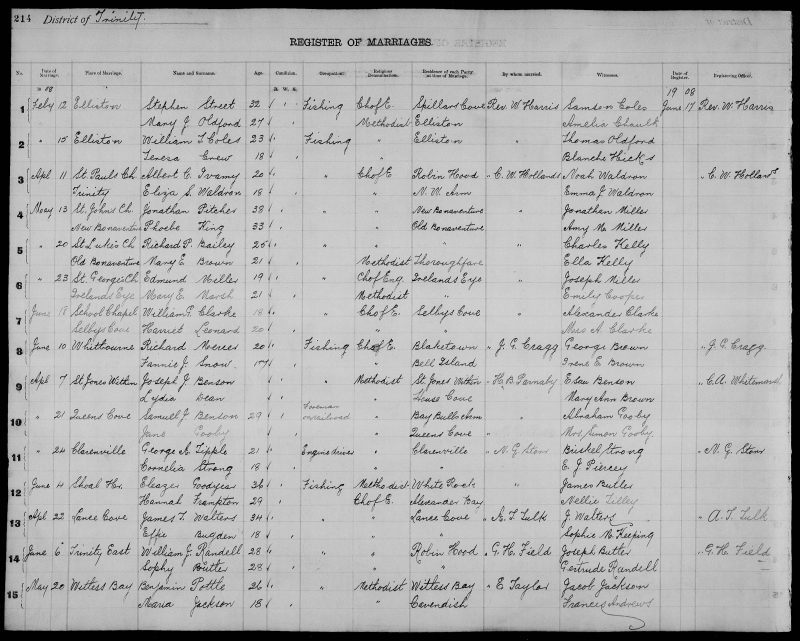 214 District of Trinity.
REGISTER OF MARRIAGES
No. Date of Marriage. Place of Marriage. Name and Surname. Age. Condition. Occupation. Religious Denomination. Residence of each Party at time of Marriage. By whom married. Witnesses. Date of Register. Registering Officer.
B. W. S.
19 08
1 Feby 12 Elliston Stephen Street 32 " Fishing Ch of E. Spillars Cove Rev. W. Harris Samson Coles June 17 Rev. W. Harris
Mary J Oldford 27 " Methodist Elliston Amelia Chaulk
2 " 15 Elliston William T Coles 23 " Fishing " Elliston " Thomas Oldford
Teresa Crew 18 " " " Blanche Hicks
3 Apl 11 St Pauls Ch. Albert C. Ivamy 20 " " Ch of E Robin Hood " C. W. Hollands Noah Waldron " C. W. Hollands
Trinity Eliza S. Waldron 18 " " N. W. Arm Emma J Waldron
4 May 13 St. John's Ch. Jonathan Pitcher 38 " " " New Bonaventure " Jonathan Miller
New Bonaventure Phoebe King 33 " " Old Bonaventure Amy M. Miller
5 " 20 St Luke's Ch Richard P. Bailey 25 " " " " " Charles Kelly
Old Bonaventure Mary E Brown 21 " Methodist Thoroughfare Ella Kelly
6 " 23 St. George's Ch. Edmund Miller 19 " " Ch of Eng. Irelands Eye " Joseph Miller
Irelands Eye Mary E. Marsh 21 " Methodist " Emily Cooper
7 June 18 School Chapel William T. Clarke 18 " " Ch of E Selbys Cove " Alexander Clarke
Selbys Cove Harriet Leonard 20 " " " Mrs A. Clarke
8 June 10 Whitbourne Richard Mercer 20 " Fishing Ch of E. Blaketown " J. G. Cragg George Brown " J. G. Cragg
Fannie J. Snow. 17 " " Bell Island Irene E. Brown
9 Apl 7 St Jones Within Joseph J Benson " Methodist St Jones Within " H. B. Parnaby Esau Benson " C. A. Whitemarsh
Lydia Dean " " Hearse Cove Mary Ann Brown
10 " 21 Queens Cove Samuel J Benson 29 " Foreman on railroad " Bay Bulls Arm " Abraham Gooby
Jane Gooby " " Queens Cove " Mrs. Simon Gooby
11 " 24 Clarenville George A. Tipple 21 " Engine driver " Clarenville " N. G. Stone Birkel Strong " N. G. Stone
Cornelia Strong 18 " " " E. J Piercey
12 June 4 Shoal Hr. Eleazer Goodyear 36 " Fishing Methodist White Rock " James Butler
Hannah Frampton 29 " Ch of E. Alexander Bay Nellie Tilley
13 Apl 22 Lance Cove James T Walters 34 " " " Lance Cove " A. T Tulk J. Walters " A. T. Tulk
Effie Bugden 18 " " " Sophie M Keeping
14 June 6 Trinity East William J Randell 28 " " " Robin Hood " G. H. Field Joseph Butter " G. H. Field
Sophy Butter 28 " " " Gertrude Randell
15 May 20 Witless Bay Benjamin Pottle 26 " " Methodist Witless Bay " E Taylor Jacob Jackson
Maria Jackson 18 " " Cavendish Francis Andrews